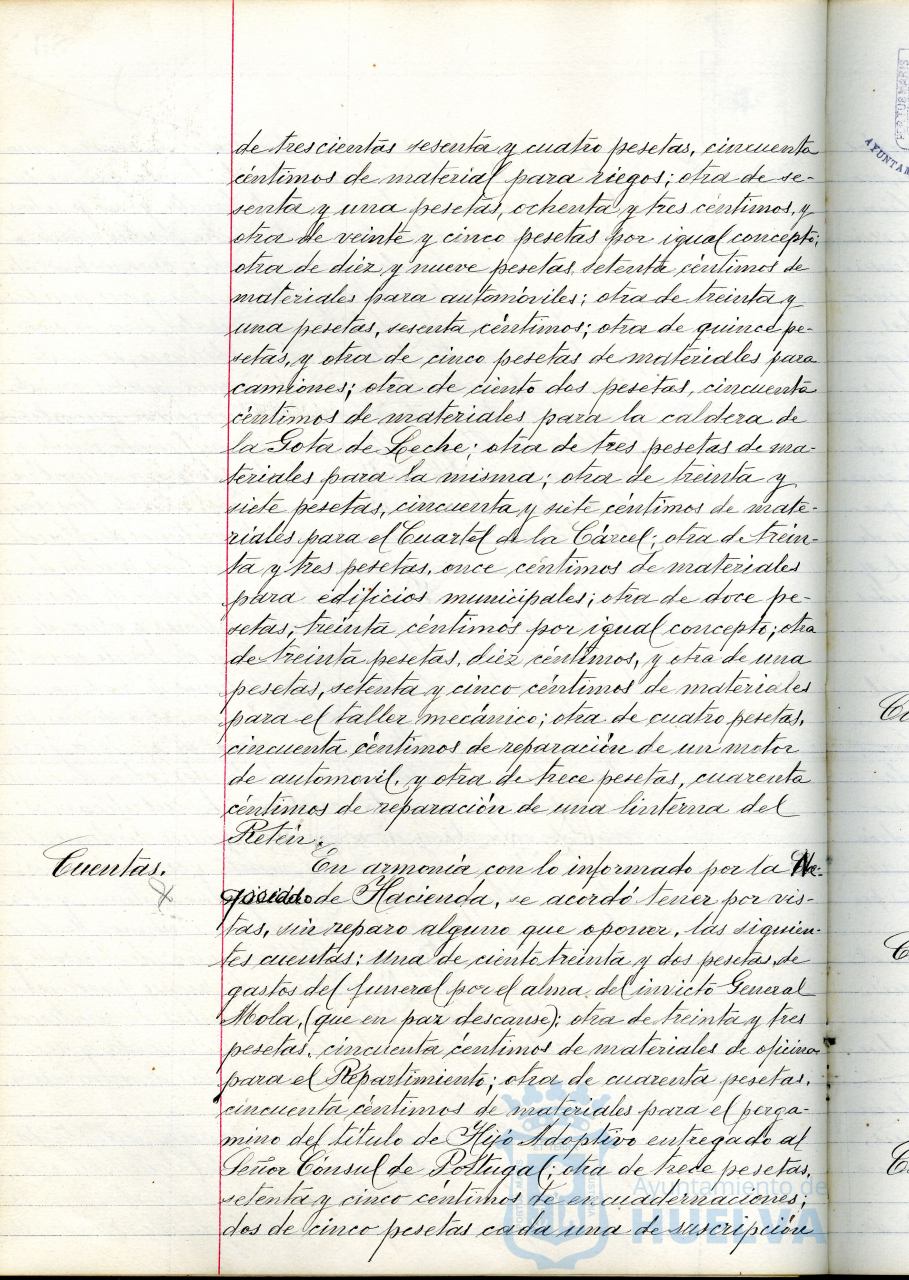 de trescientas sesenta y cuatro pesetas, cincuenta
céntimos de material para riegos; otra de se-
senta y una pesetas, ochenta y tres céntimos, y
otra de veinte y cinco pesetas por igual concepto;
otra de diez y nueve pesetas, setenta céntimos de
materiales para automóviles; otra de treinta y
una pesetas, sesenta céntimos; otra de quince pe-
setas, y otra de cinco pesetas de materiales para
camiones; otra de ciento dos pesetas, cincuenta
céntimos de materiales para la caldera de
la Gota de Leche; otra de tres pesetas de ma-
teriales para la misma; otra de treinta y
siete pesetas, cincuenta y siete céntimos de mate-
riales para el Cuartel de la Cárcel; otra de trein-
ta y tres pesetas, once céntimos de materiales
para edificios municipales; otra de doce pe-
setas, treinta céntimos por igual concepto; otra
de treinta pesetas, diez céntimos, y otra de una
pesetas, setenta y cinco céntimos de materiales
para el taller mecánico; otra de cuatro pesetas,
cincuenta céntimos de reparación de un motor
de automovil, y otra de trece pesetas, cuarenta
céntimos de reparación de una linterna del
Retén.
Cuentas. En armonía con lo informado por la Ne-
gociado de Hacienda, se acordó tener por vis-
tas, sin reparo alguno que oponer, las siguien-
tes cuentas: una de ciento treinta y dos pesetas, de
gastos del funeral por el alma del invicto General
Mola, (que en paz descanse); otra de treinta y tres
pesetas, cincuenta céntimos de materiales de oficina
para el Repartimiento; otra de cuarenta pesetas,
cincuenta céntimos de materiales para el perga-
mino del título de Hijo Adoptivo entregado al
Señor Cónsul de Portugal; otra de trece pesetas,
setenta y cinco céntimos de encuadernaciones;
dos de cinco pesetas cada una de suscripción
Ayuntamiento de
HUELVA